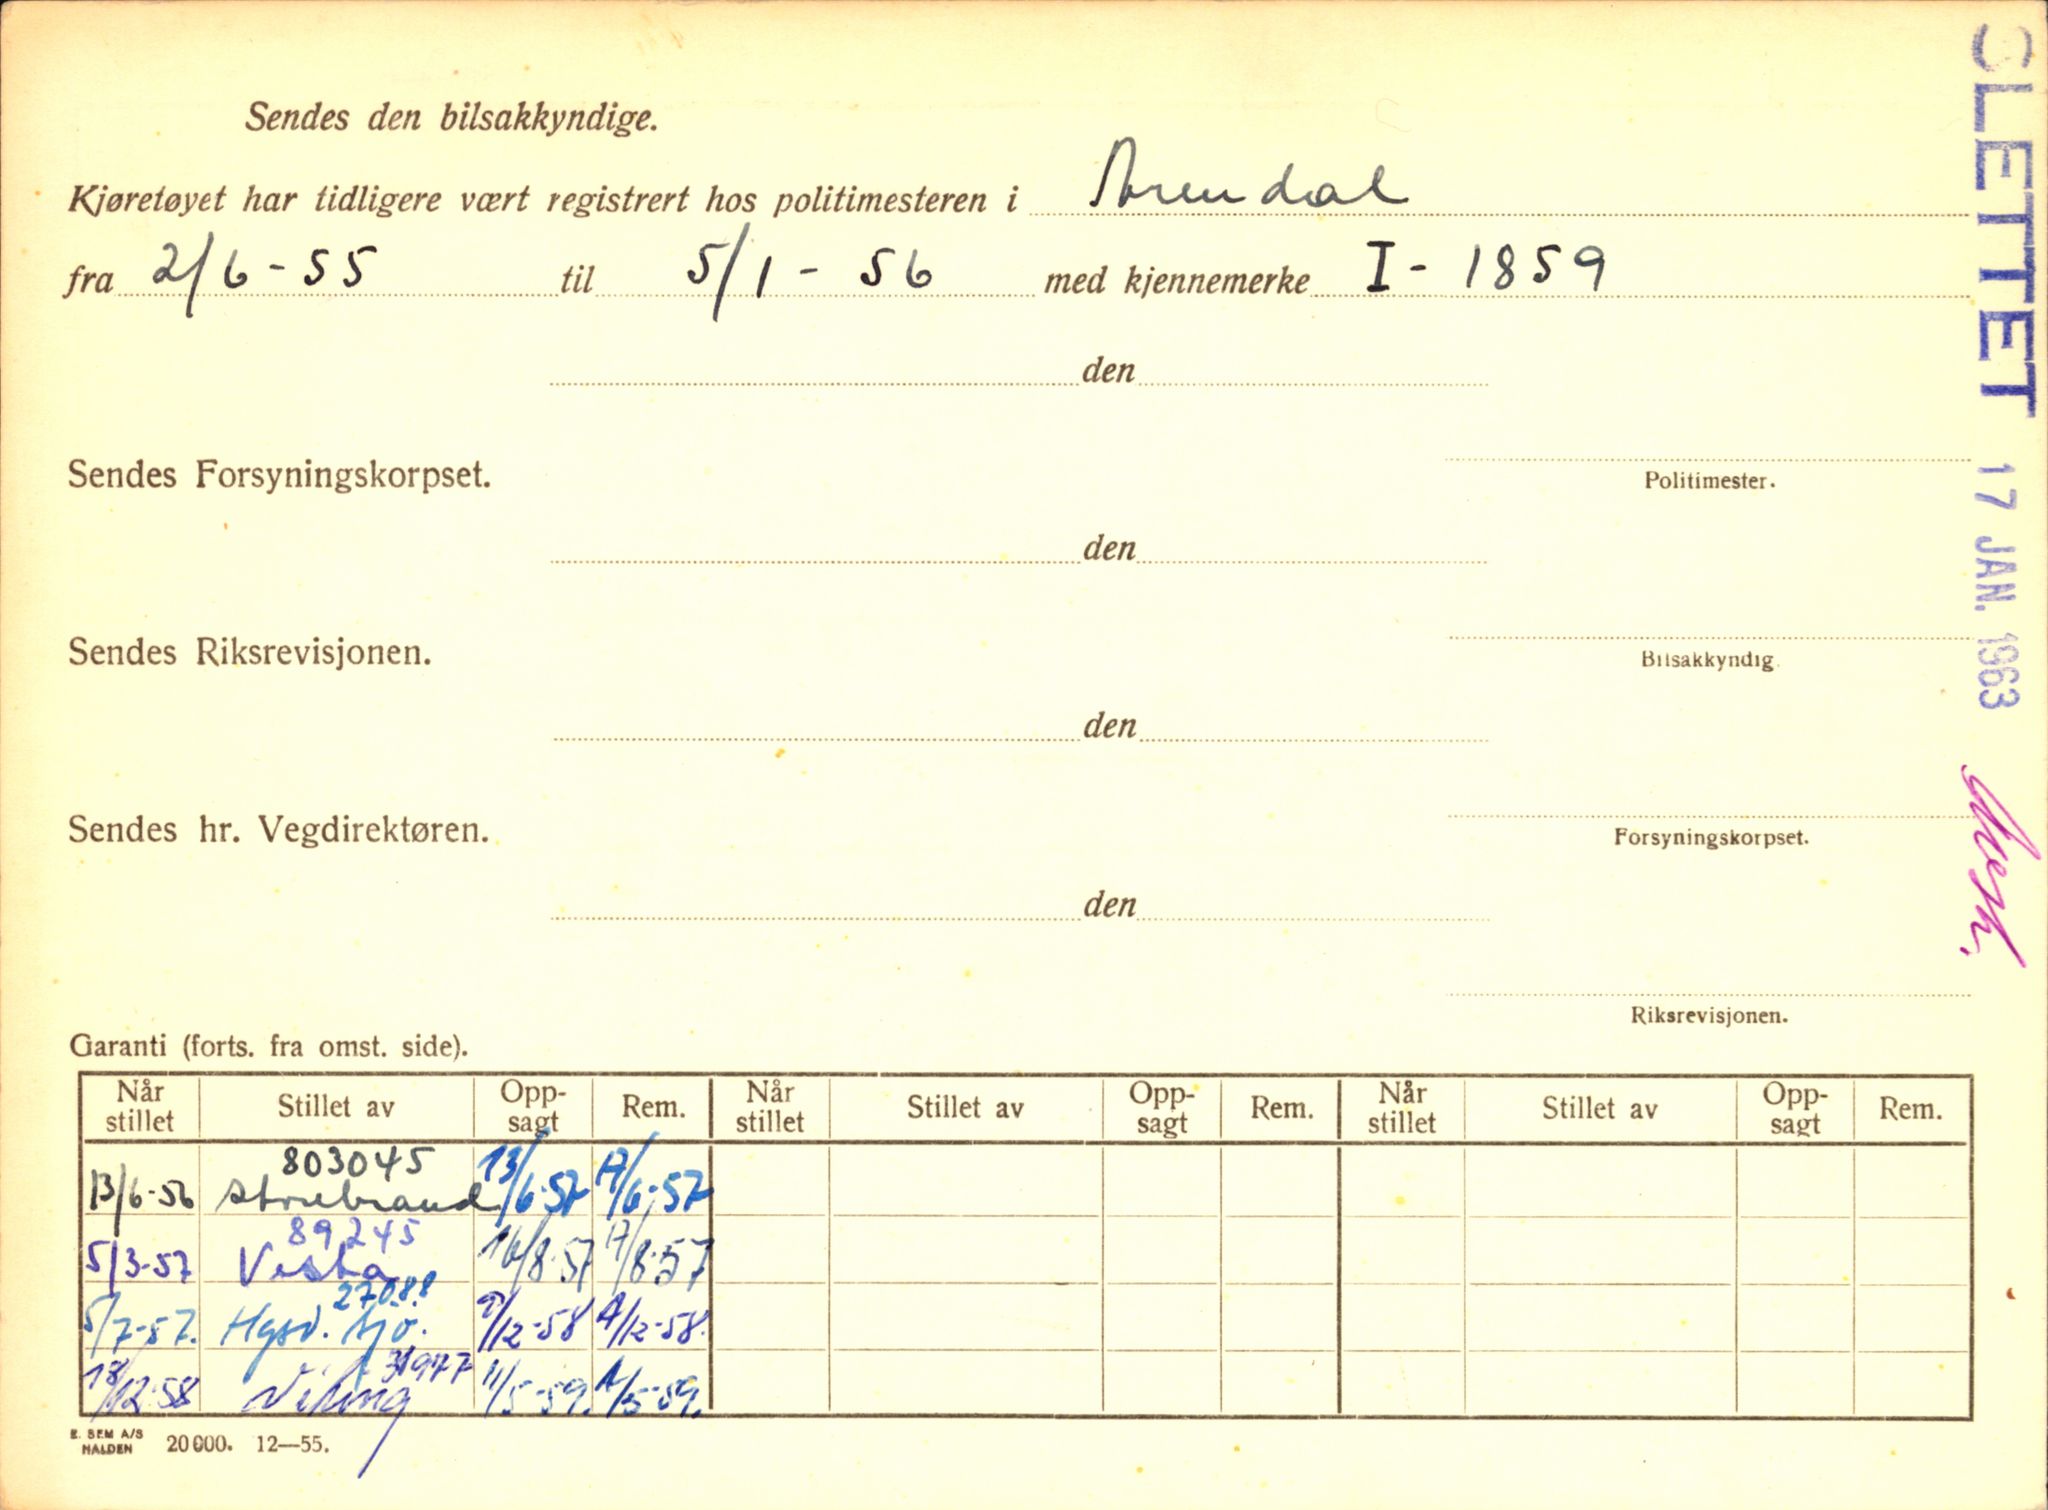 Sendes den bilsakkyndige.
Kjøretøyet har tidligere vært registrert hos politimesteren i Arendal
fra 2/6-55 til 5/1-56 med kjennemerke I-1859
den
Sendes Forsyningskorpset.
Politimester.
den
Sendes Riksrevisjonen.
Bilsakkyndig.
den
Sendes hr. Vegdirektøren.
Forsyningskorpset.
den
Riksrevisjonen.
SLETTET 17 JAN. 1963
Garanti (forts. fra omst. side).
Når stillet Stillet av Opp-sagt Rem. Når stillet Stillet av Opp-sagt Rem. Når stillet Stillet av Opp-sagt Rem.
803045
13/6-56 Storebrand 13/6-57 17/6-57
89245
5/3-57 Vesta 16/8-57 17/8-57
27088
5/7-57. Hgsd. Sjø. /12-58 /12-58.
31977
18/12-58 Viking 11/5-59. /5-59.
E. SEM A/S
HALDEN 20000. 12—55.